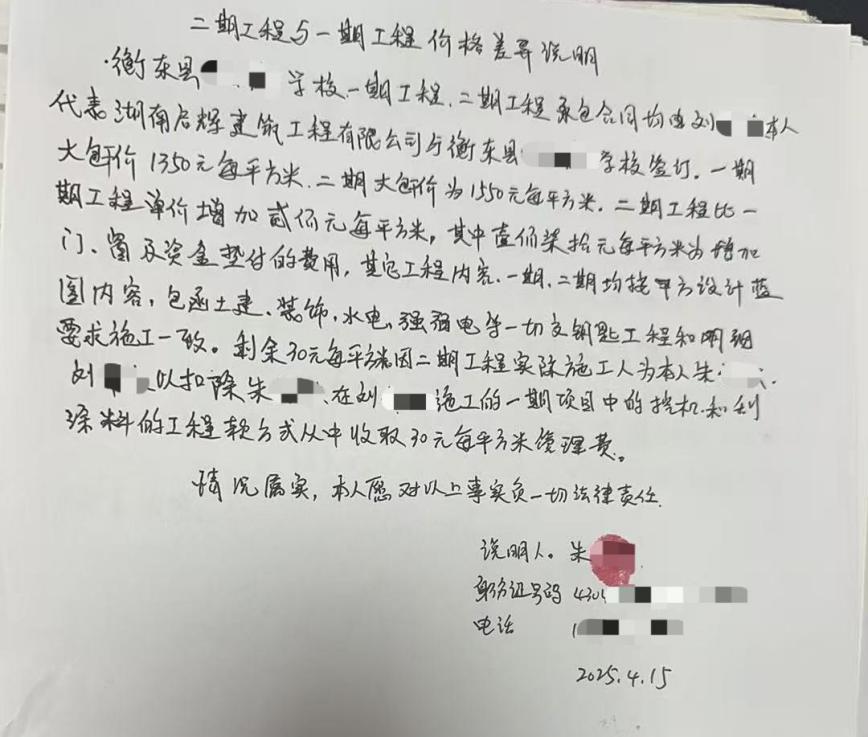 二期工程与一期工程价格差异说明
衡东县 学校一期工程.二期工程承包合同均由刘 本人
代表湖南启辉建筑工程有限公司与衡东县 学校签订.一期
大包干价1350元每平方米.二期大包干价为1550元每平方米.二期工程比一
期工程单价增加贰佰元每平方米,其中壹佰柒拾元每平方米为增加
门、窗及资金垫付的费用,其它工程内容.一期.二期均按甲方设计蓝
图内容,包函土建、装饰,水电,强弱电等一切交钥匙工程和明细
要求施工一致。剩余30元每平方 因二期工程实际施工人为本人朱
刘 以扣除朱 在刘 施工的一期项目中的挖机和
涂料的工程款方式从中收取30元每平方米管理费。
情况属实,本人愿对以上事实负一切法律责任.
说明人。朱
身份证号码 430
电话 1
2025.4.15